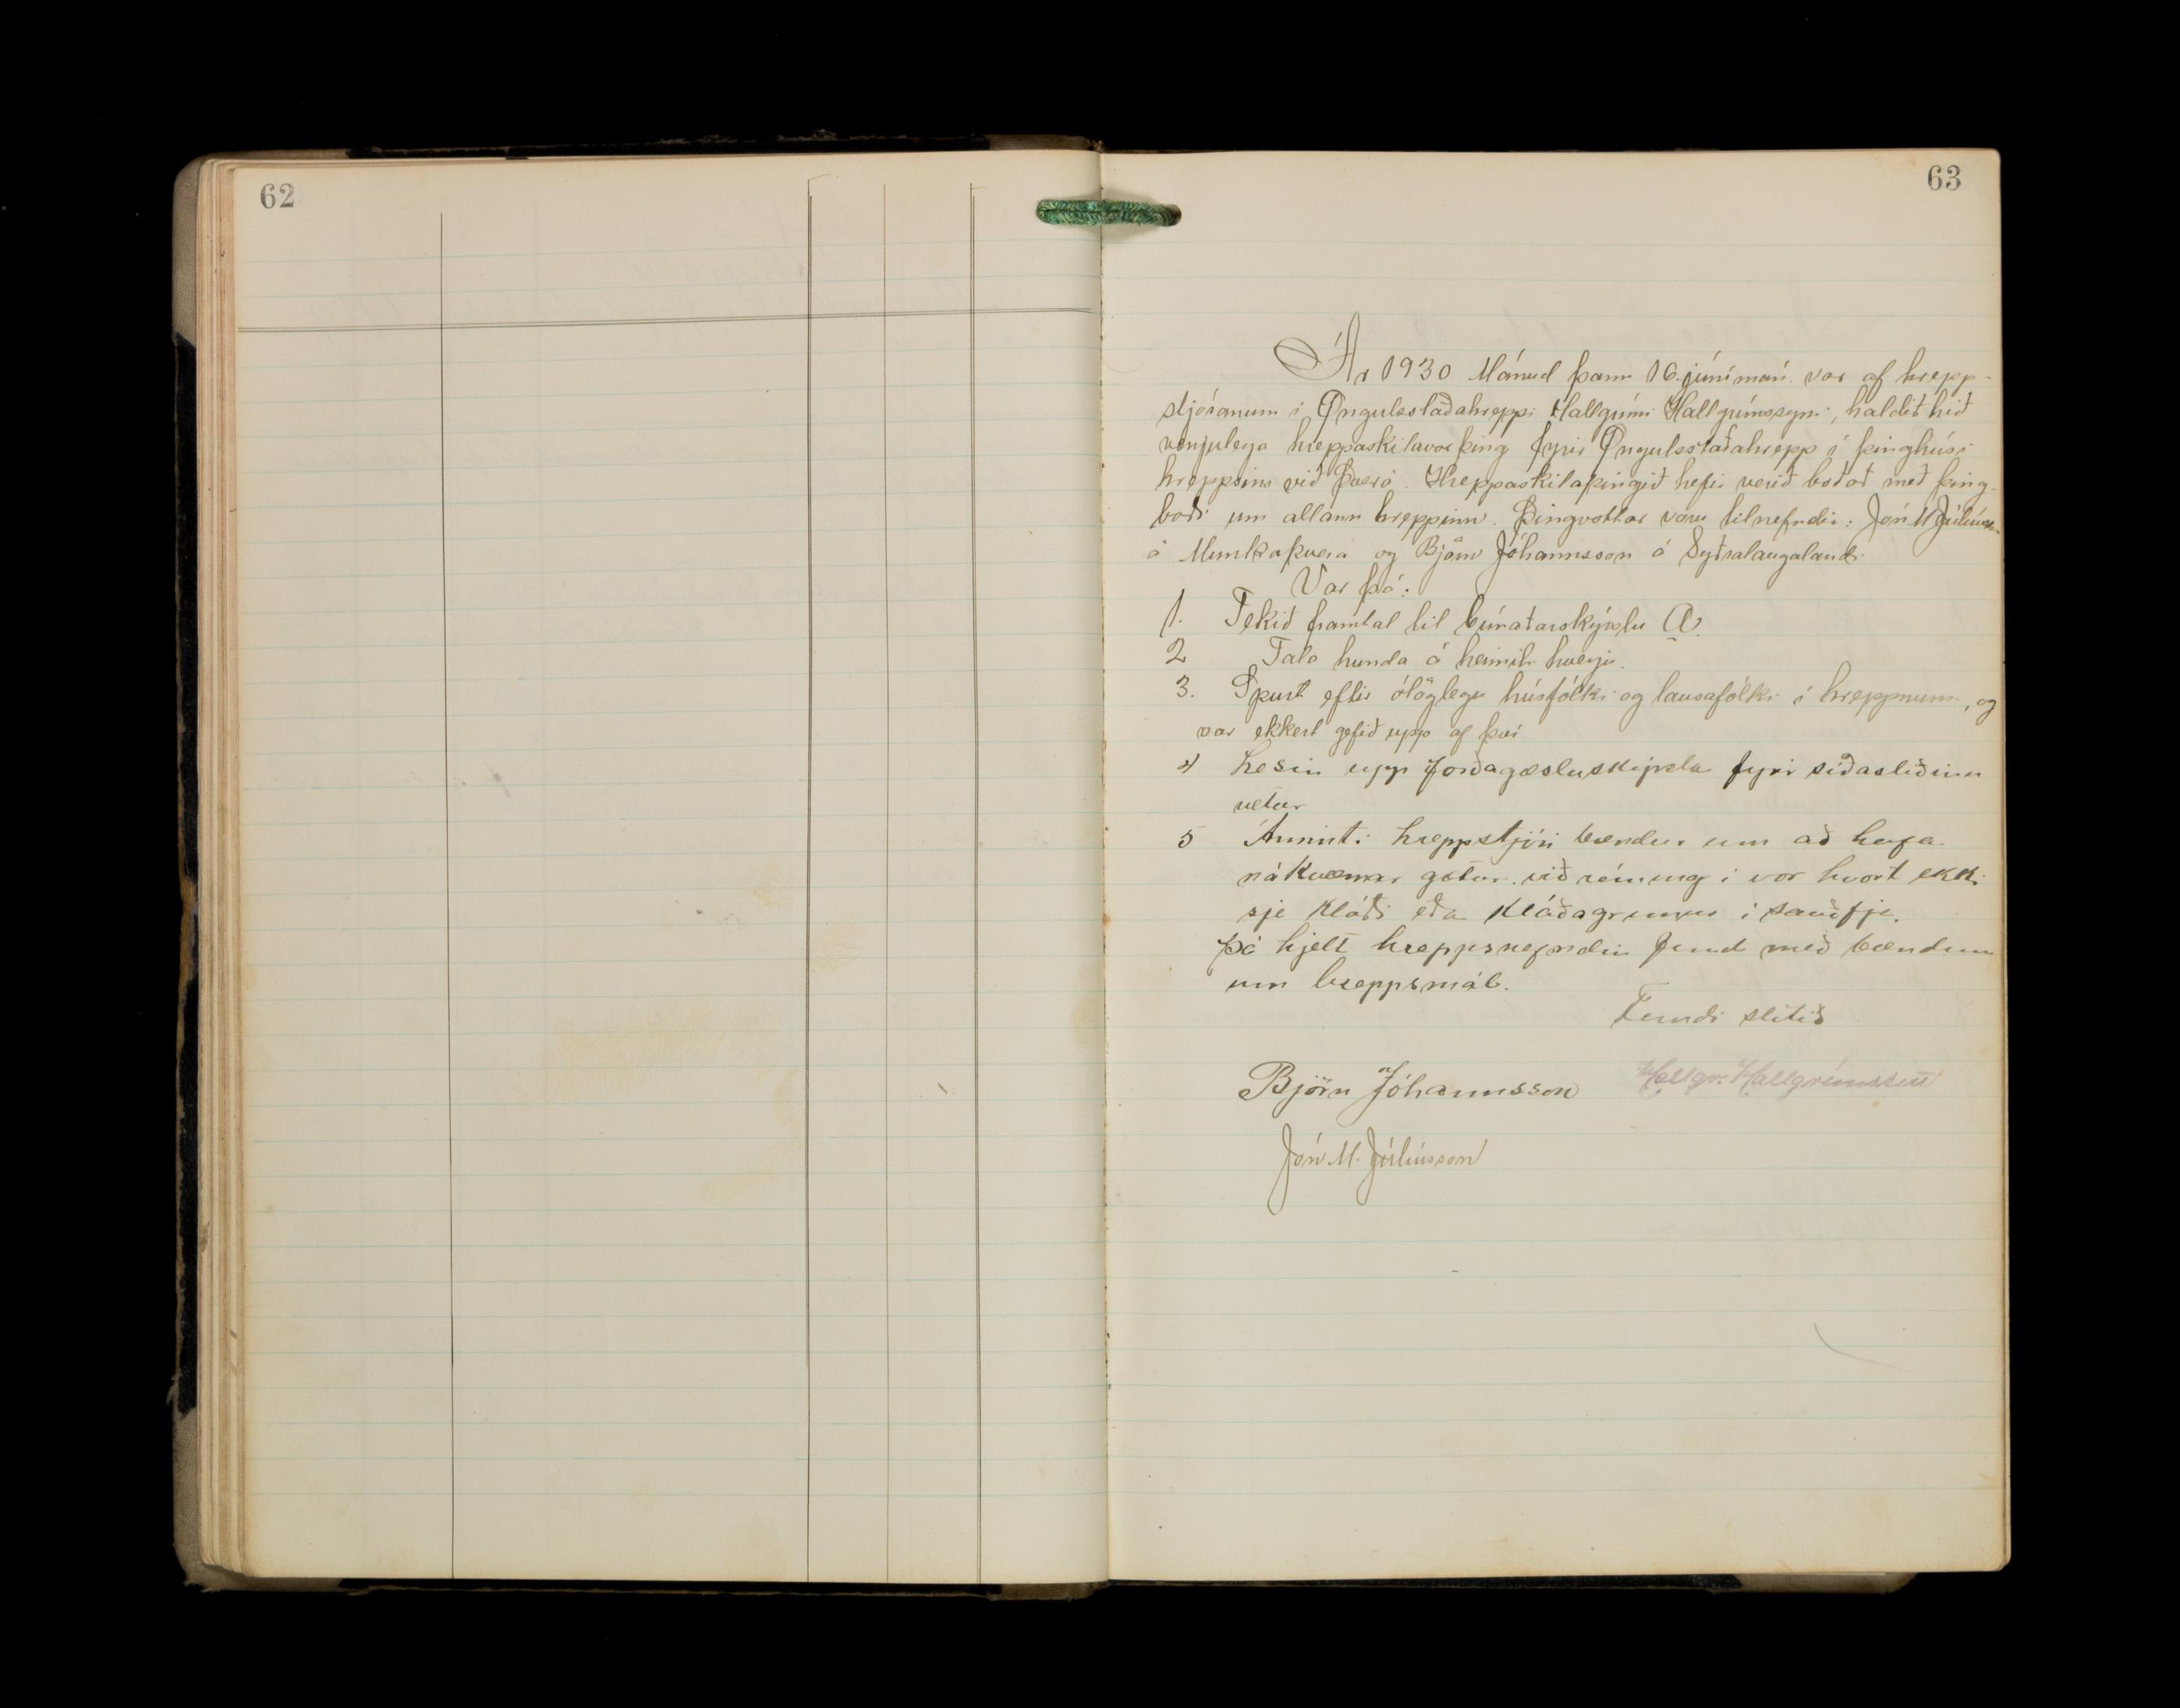 62
63
Ár 1930 Mánud þann 16. júnímán. var af hrepp-
stjóranum í Öngulsstaðahreppi Hallgrími Hallgrímssyni, haldið hið
venjulega hreppaskilavorþing fyrir Öngulsstaðahrepp í þinghúsi
hreppsins við Þverá. Hreppaskilaþingið hefir verið boðað með þing-
boði um allann hreppinn. Þingvottar voru tilnefndir: Jón M Júlíusson
á Munkaþverá og Björn Jóhannsson á Sytralaugalandi
Var þá:
1. Tekið framtal til búnaðarskýrslu A.
2 Tala hunda á heimili hverju.
3. Spurt eftir ólöglegu húsfólki og lausafólki í hreppnum, og
var ekkert gefið upp af því
4 Lesin upp forðagæsluskýrsla fyrir síðasliðinn
vetur
5 Áminti hreppstjóri bændur um að hafa
nákvæmar gætur við rúning í vor hvort ekki
sje kláði eða kláðagrunur í sauðfje.
Þá hjelt hreppsnefndin fund með bændum
um hreppsmál.
Fundi slitið
Björn Jóhannsson Hallgr. Hallgrímsson
Jón M. Júlíusson